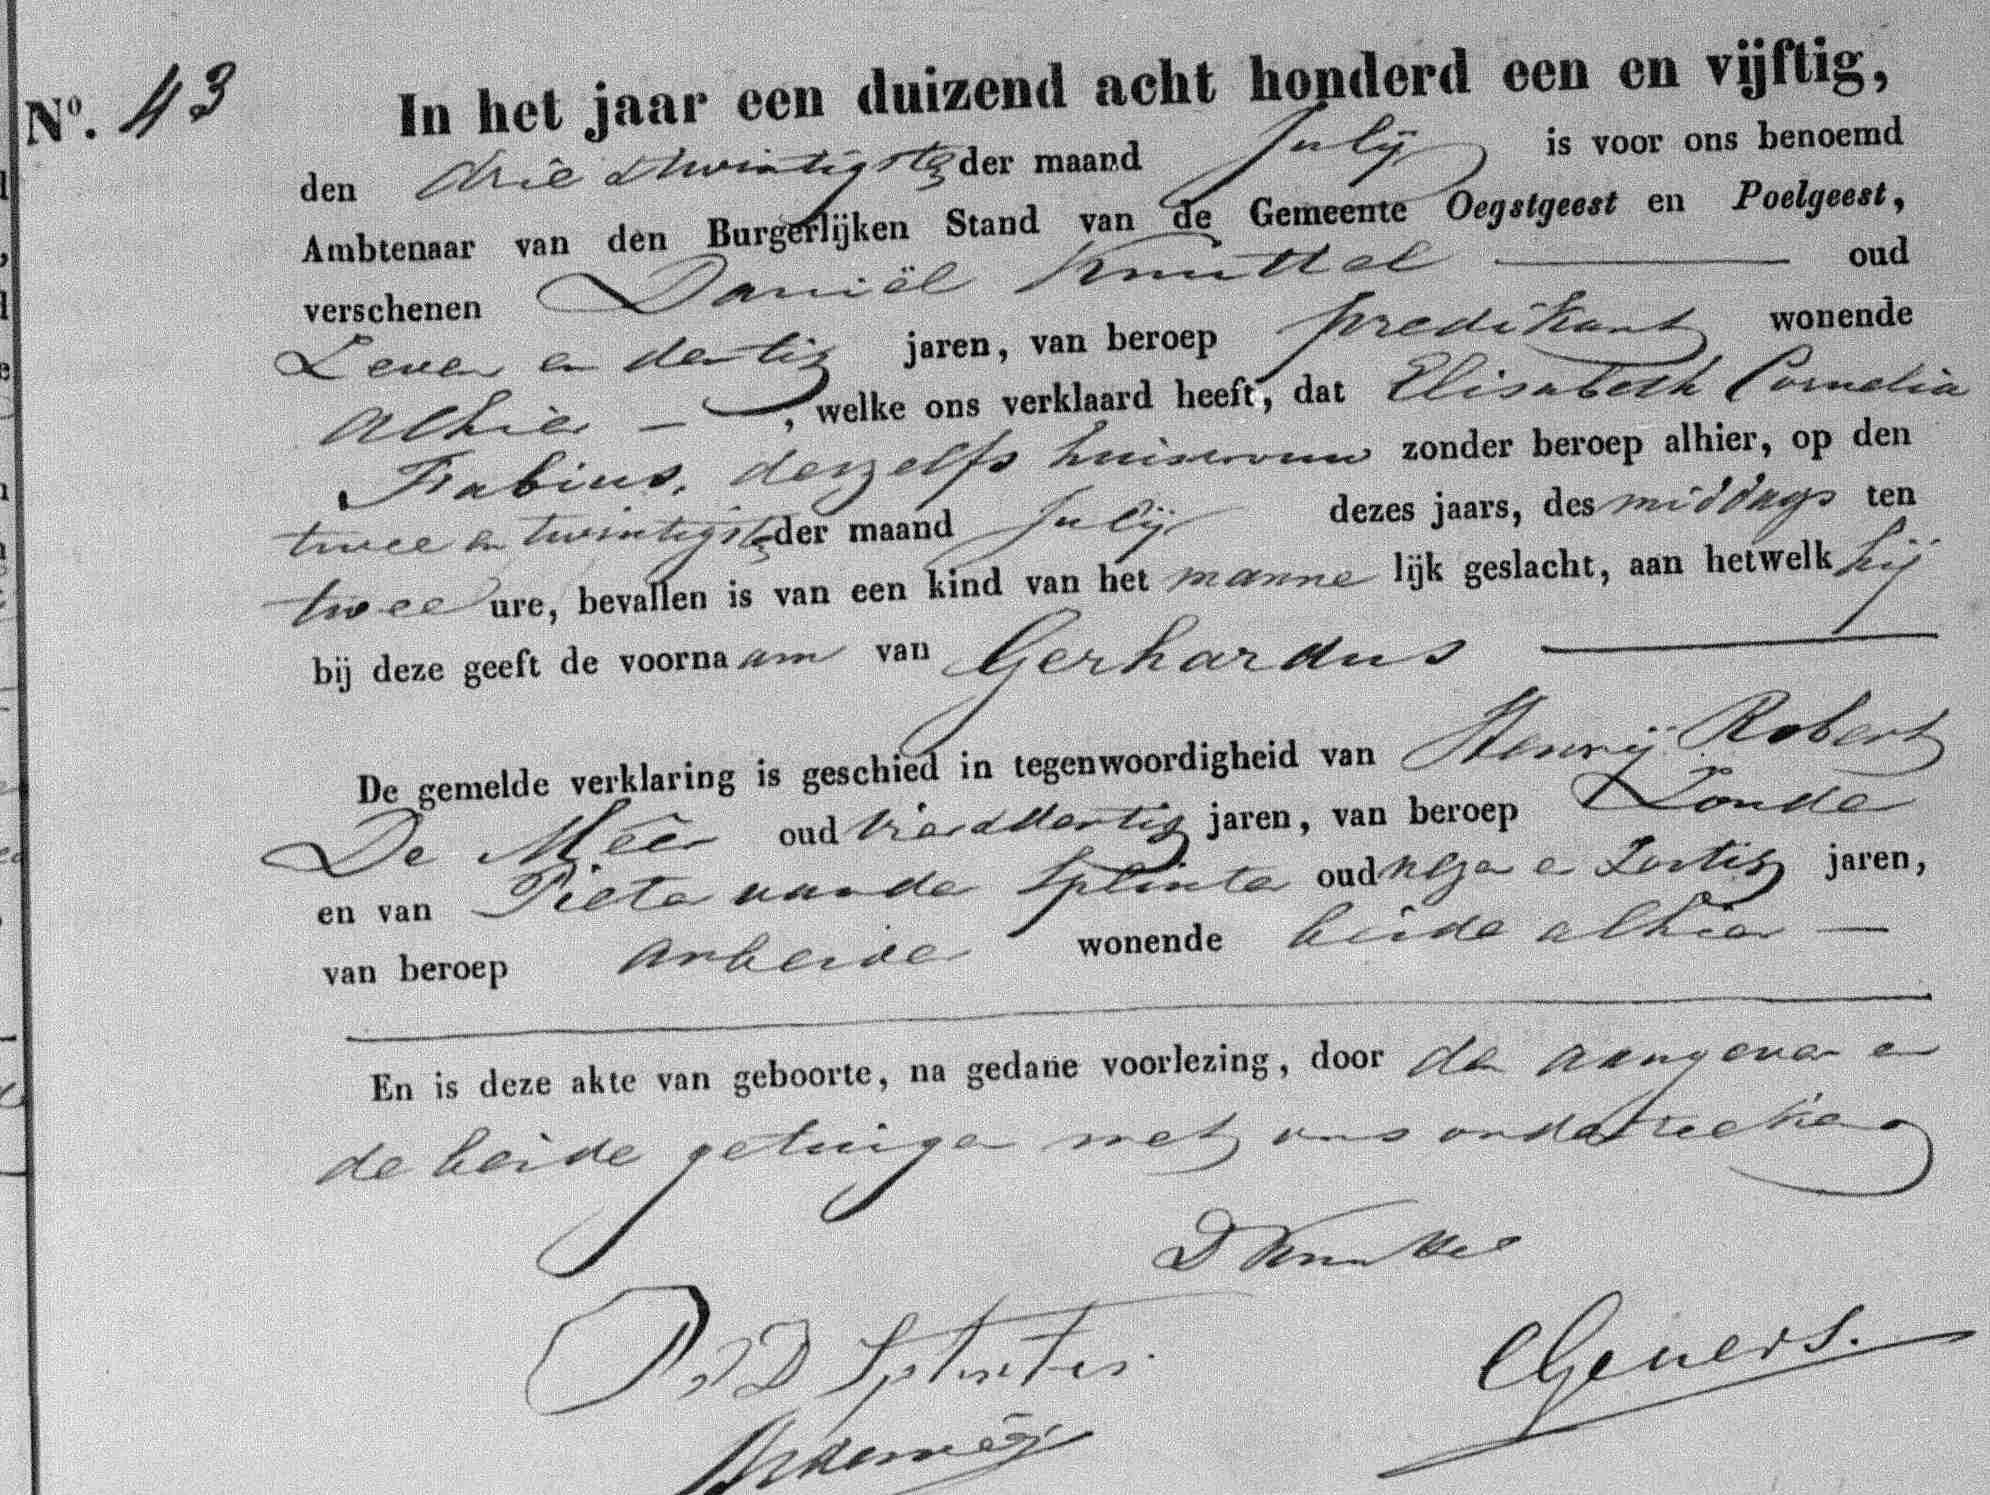 No. 43
In het jaar een duizend acht honderd een en vijftig,
den drie & twintigste der maand Julij is voor ons benoemd
Ambtenaar van den Burgerlijken Stand van de Gemeente Oegstgeest en Poelgeest,
verschenen Daniël Knuttel oud
Zeven en dertig jaren, van beroep predikant wonende
Alhier –, welke ons verklaard heeft, dat Elisabeth Cornelia
Frabius, deszelfs huisvrouw zonder beroep alhier, op den
twee en twintigste der maand Julij dezes jaars, des middags ten
twee ure, bevallen is van een kind van het mannelijk geslacht, aan hetwelk hij
bij deze geeft de voornaam van Gerhardus
De gemelde verklaring is geschied in tegenwoordigheid van Henrij Robert
De Meer oud jaren, van beroep
en van Pieter van der Splinter oud jaren,
van beroep arbeider wonende beide alhier –
En is deze akte van geboorte, na gedane voorlezing, door den aangever en
de beide getuigen met ons onderteekend
D Knuttel
P vD Splinter
CGevers.